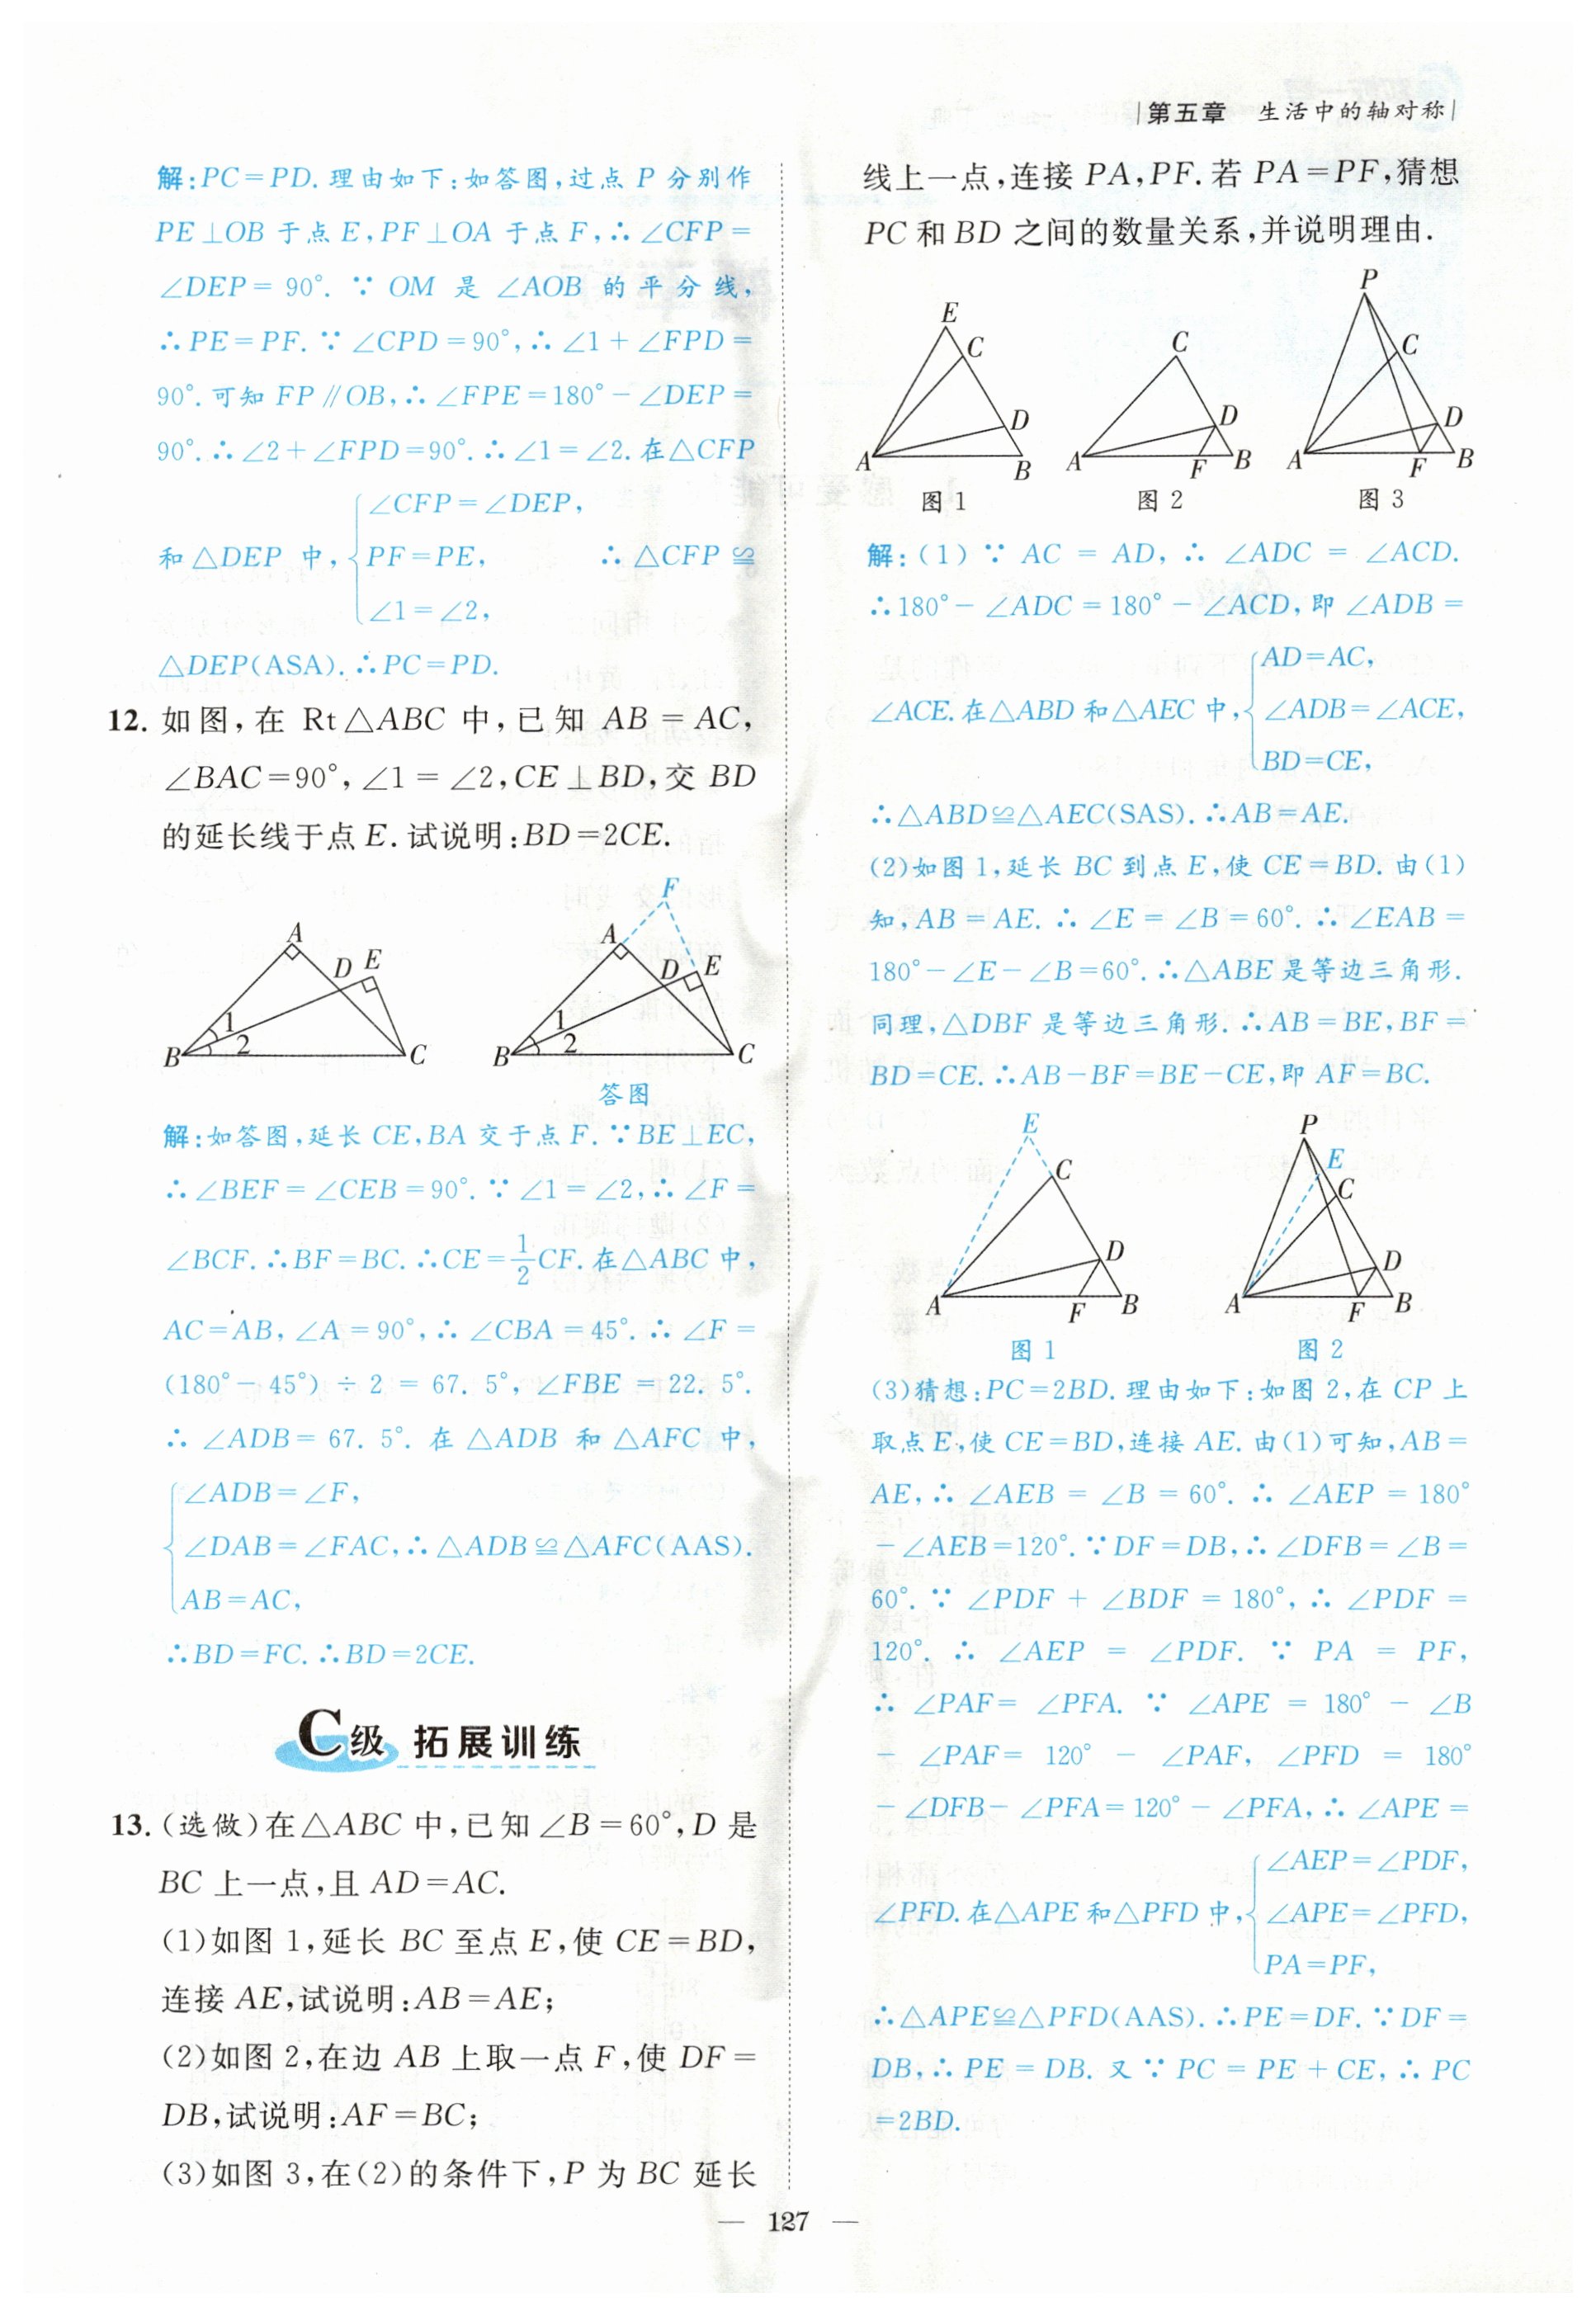 |第五章 生活中的轴对称|
解:PC=PD.理由如下:如答图,过点 P 分别作
PE⊥OB 于点 E,PF⊥OA 于点 F,∴∠CFP=
∠DEP=90°.∵OM 是∠AOB 的平分线,
∴PE=PF.∵∠CPD=90°,∴∠1+∠FPD=
90°.可知 FP∥OB,∴∠FPE=180°-∠DEP=
90°.∴∠2+∠FPD=90°.∴∠1=∠2.在△CFP
∠CFP=∠DEP,
和△DEP 中, PF=PE, ∴△CFP≌
∠1=∠2,
△DEP(ASA).∴PC=PD.
12. 如图,在 Rt△ABC 中,已知 AB=AC,
∠BAC=90°,∠1=∠2,CE⊥BD,交 BD
的延长线于点 E.试说明:BD=2CE.
A D E 1 2 B C
F A D E 1 2 B C
答图
解:如答图,延长 CE,BA 交于点 F.∵BE⊥EC,
∴∠BEF=∠CEB=90°.∵∠1=∠2,∴∠F=
∠BCF.∴BF=BC.∴CE=1/2CF.在△ABC 中,
AC=AB,∠A=90°,∴∠CBA=45°.∴∠F=
(180°-45°)÷2=67.5°,∠FBE=22.5°.
∴∠ADB=67.5°.在△ADB 和△AFC 中,
∠ADB=∠F,
∠DAB=∠FAC,∴△ADB≌△AFC(AAS).
AB=AC,
∴BD=FC.∴BD=2CE.
C级 拓展训练
13.(选做)在△ABC 中,已知∠B=60°,D 是
BC 上一点,且 AD=AC.
(1)如图 1,延长 BC 至点 E,使 CE=BD,
连接 AE,试说明:AB=AE;
(2)如图 2,在边 AB 上取一点 F,使 DF=
DB,试说明:AF=BC;
(3)如图 3,在(2)的条件下,P 为 BC 延长
线上一点,连接 PA,PF.若 PA=PF,猜想
PC 和 BD 之间的数量关系,并说明理由.
E C D A B
C D A F B
P C D A F B
图 1 图 2 图 3
解:(1)∵AC=AD,∴∠ADC=∠ACD.
∴180°-∠ADC=180°-∠ACD,即∠ADB=
AD=AC,
∠ACE.在△ABD 和△AEC 中, ∠ADB=∠ACE,
BD=CE,
∴△ABD≌△AEC(SAS).∴AB=AE.
(2)如图 1,延长 BC 到点 E,使 CE=BD.由(1)
知,AB=AE.∴∠E=∠B=60°.∴∠EAB=
180°-∠E-∠B=60°.∴△ABE 是等边三角形.
同理,△DBF 是等边三角形.∴AB=BE,BF=
BD=CE.∴AB-BF=BE-CE,即 AF=BC.
E C D A F B
P E C D A F B
图 1 图 2
(3)猜想:PC=2BD.理由如下:如图 2,在 CP 上
取点 E,使 CE=BD,连接 AE.由(1)可知,AB=
AE,∴∠AEB=∠B=60°.∴∠AEP=180°
-∠AEB=120°.∵DF=DB,∴∠DFB=∠B=
60°.∵∠PDF+∠BDF=180°,∴∠PDF=
120°.∴∠AEP=∠PDF.∵PA=PF,
∴∠PAF=∠PFA.∵∠APE=180°-∠B
-∠PAF=120°-∠PAF,∠PFD=180°
-∠DFB-∠PFA=120°-∠PFA,∴∠APE=
∠AEP=∠PDF,
∠PFD.在△APE 和△PFD 中, ∠APE=∠PFD,
PA=PF,
∴△APE≌△PFD(AAS).∴PE=DF.∵DF=
DB,∴PE=DB.又∵PC=PE+CE,∴PC
=2BD.
— 127 —